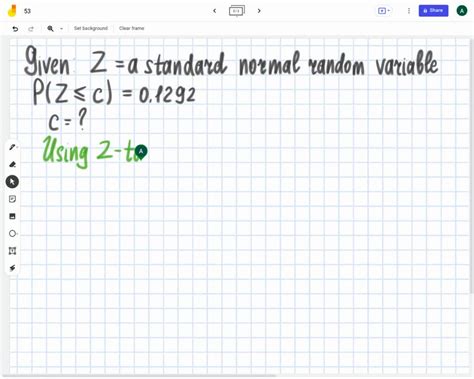 53
1/1
Share
A
Set background
Clear frame
Given: Z = a standard normal random variable
P(Z ⩽ c) = 0.1292
c = ?
Using Z-t
A